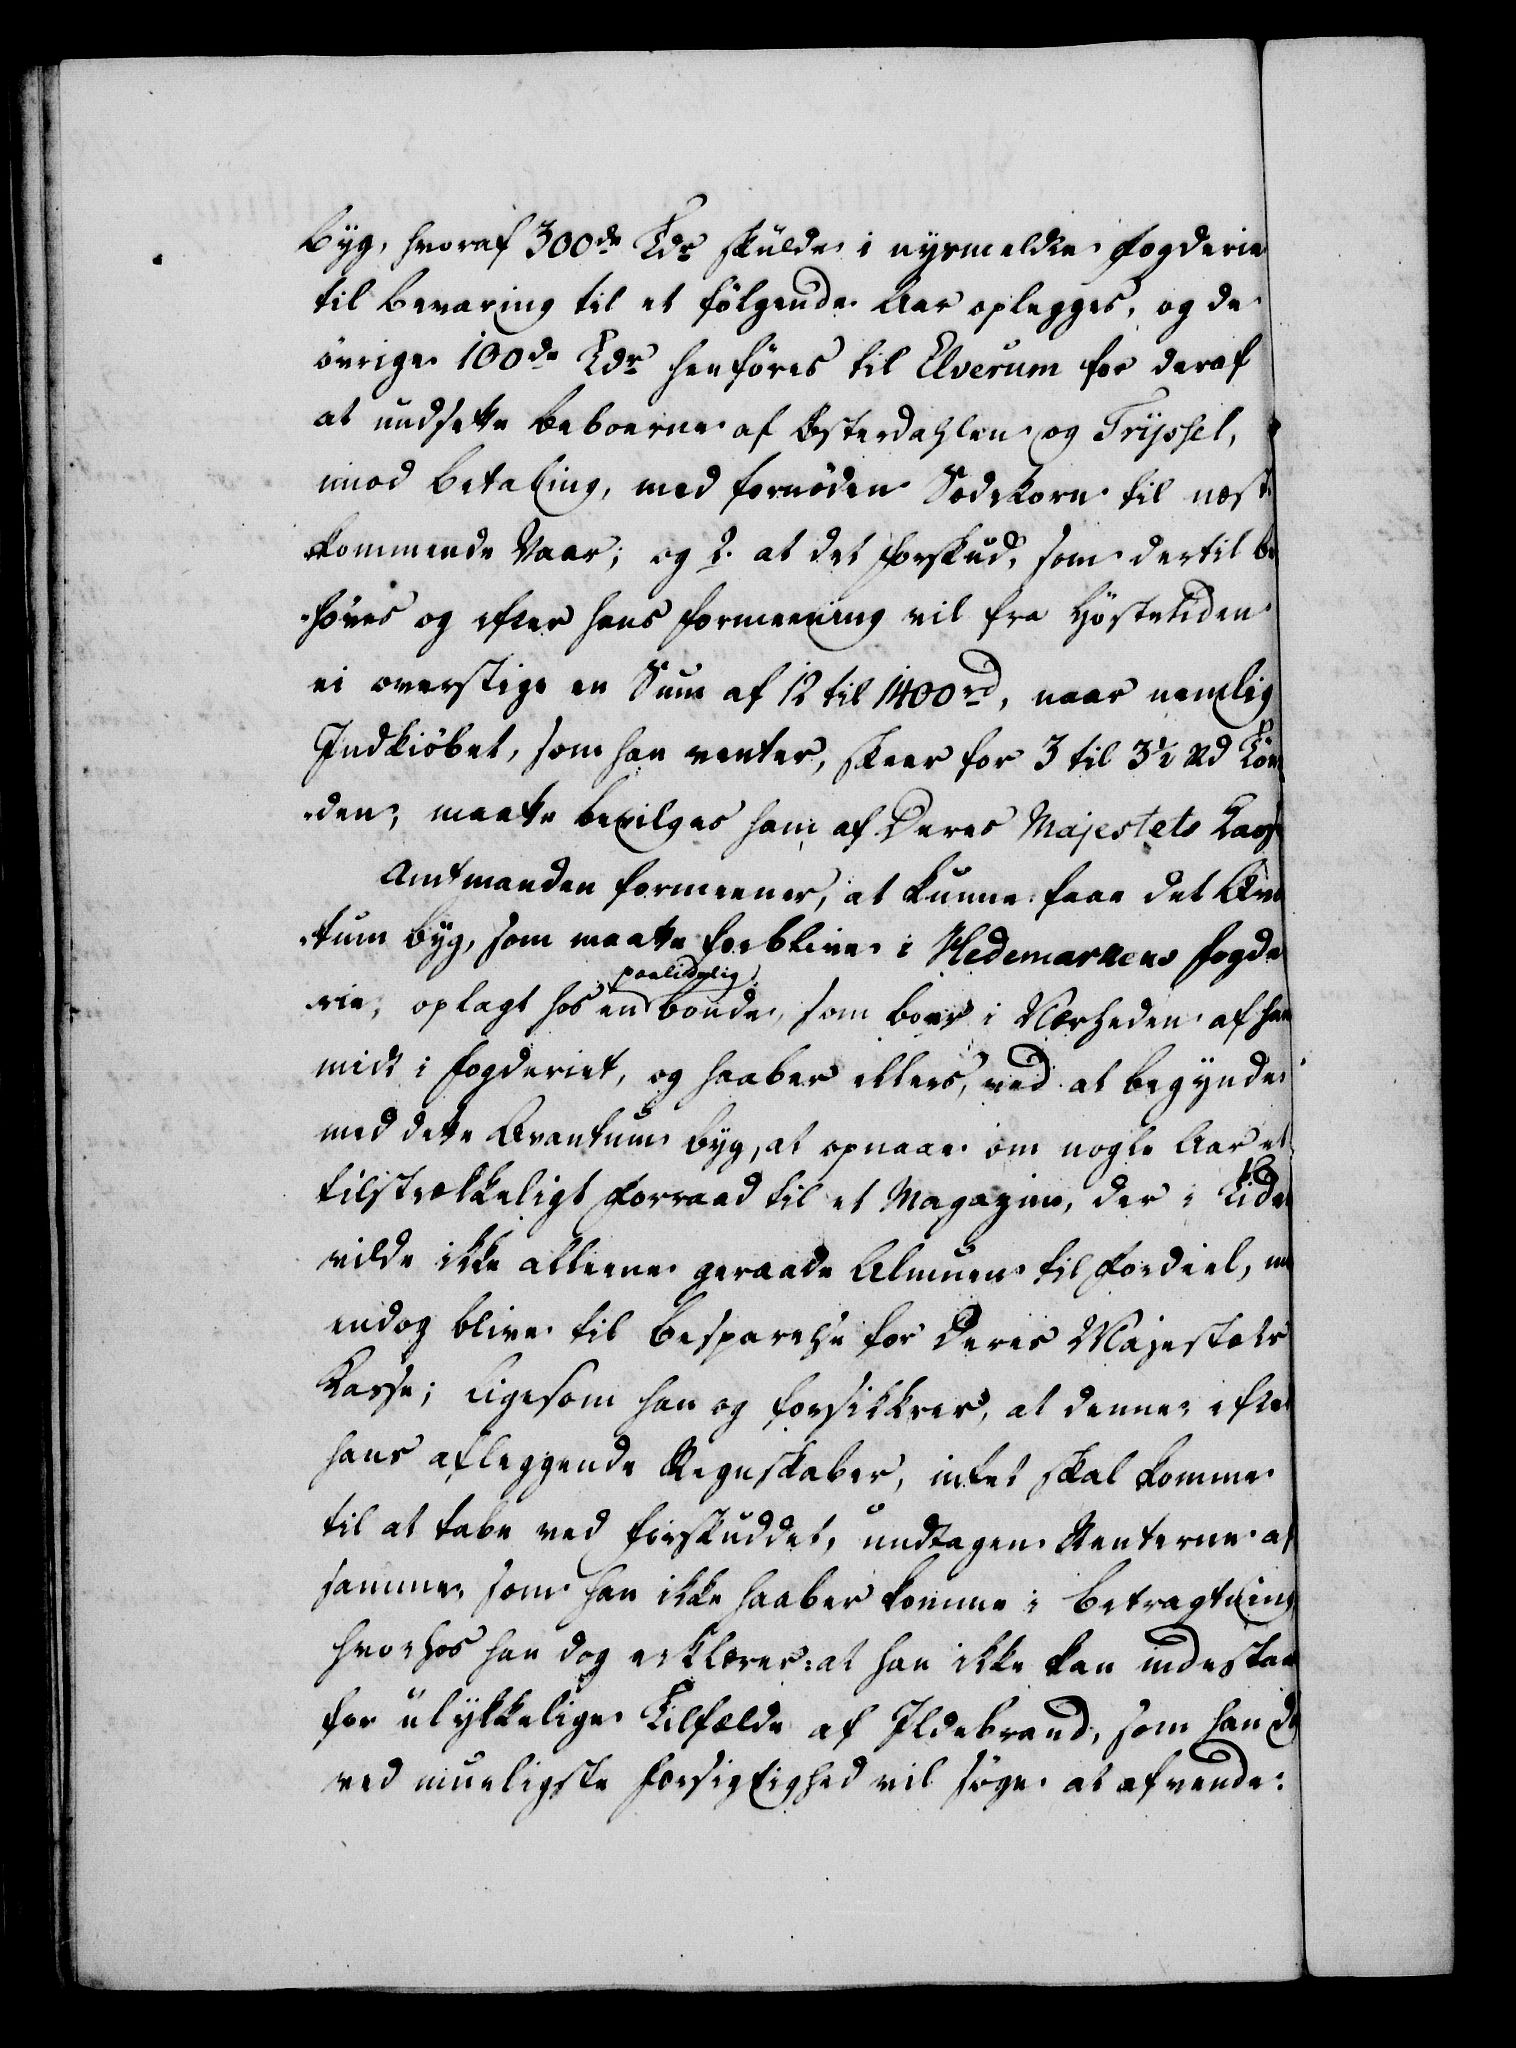 Byg, hvoraf 300de Tdr skulde i nysmeldte Fogderie
til bevaring til et følgende Aar oplegges, og de
øvrige 100de Tdr henføres til Elverum for deraf
at undsette beboerne af Østerdahlen og Tryssel,
imod betaling, med fornøden Sædekorn til næst
kommende Vaar; og 2. at det Forskud, som dertil be
høves og efter hans formeening vil fra Høstetiden
ei overstige en Sum af 12 til 1400 rd, naar nemlig
Indkiøbet, som han venter, skeer for 3 til 3½ Rd Tøn
den; maatte bevilges ham af Deres Majestets Casse
Amtmanden formeener, at kunne faae det Qvan
tum byg, som maatte forblive i Hedemarkens fogde
rie, oplagt hos en paalidelig bonde, som boer i Nærheden af ham
midt i fogderiet, og haaber ellers, ved at begynde
med dette Qvantum byg, at opnaae om nogle Aar et
tilstrækkeligt Forraad til et Magazin, der i Tiden
vilde ikke alleene geraade Almuen til Fordeel, men
endog blive til besparelse for Deres Majestæts
Kasse; ligesom han og forsikkrer, at denne, efter
hans aflæggende Regnskaber, intet skal komme
til at tabe ved forskuddet, undtagen Renterne af
samme, som han ikke haaber komme i betragtning
hvorhos han dog erklærer: at han ikke kan indestaae
for ulykkelige Tilfælde af Ildebrand, som han dog
ved mueligste forsigtighed vil søge at afvende: